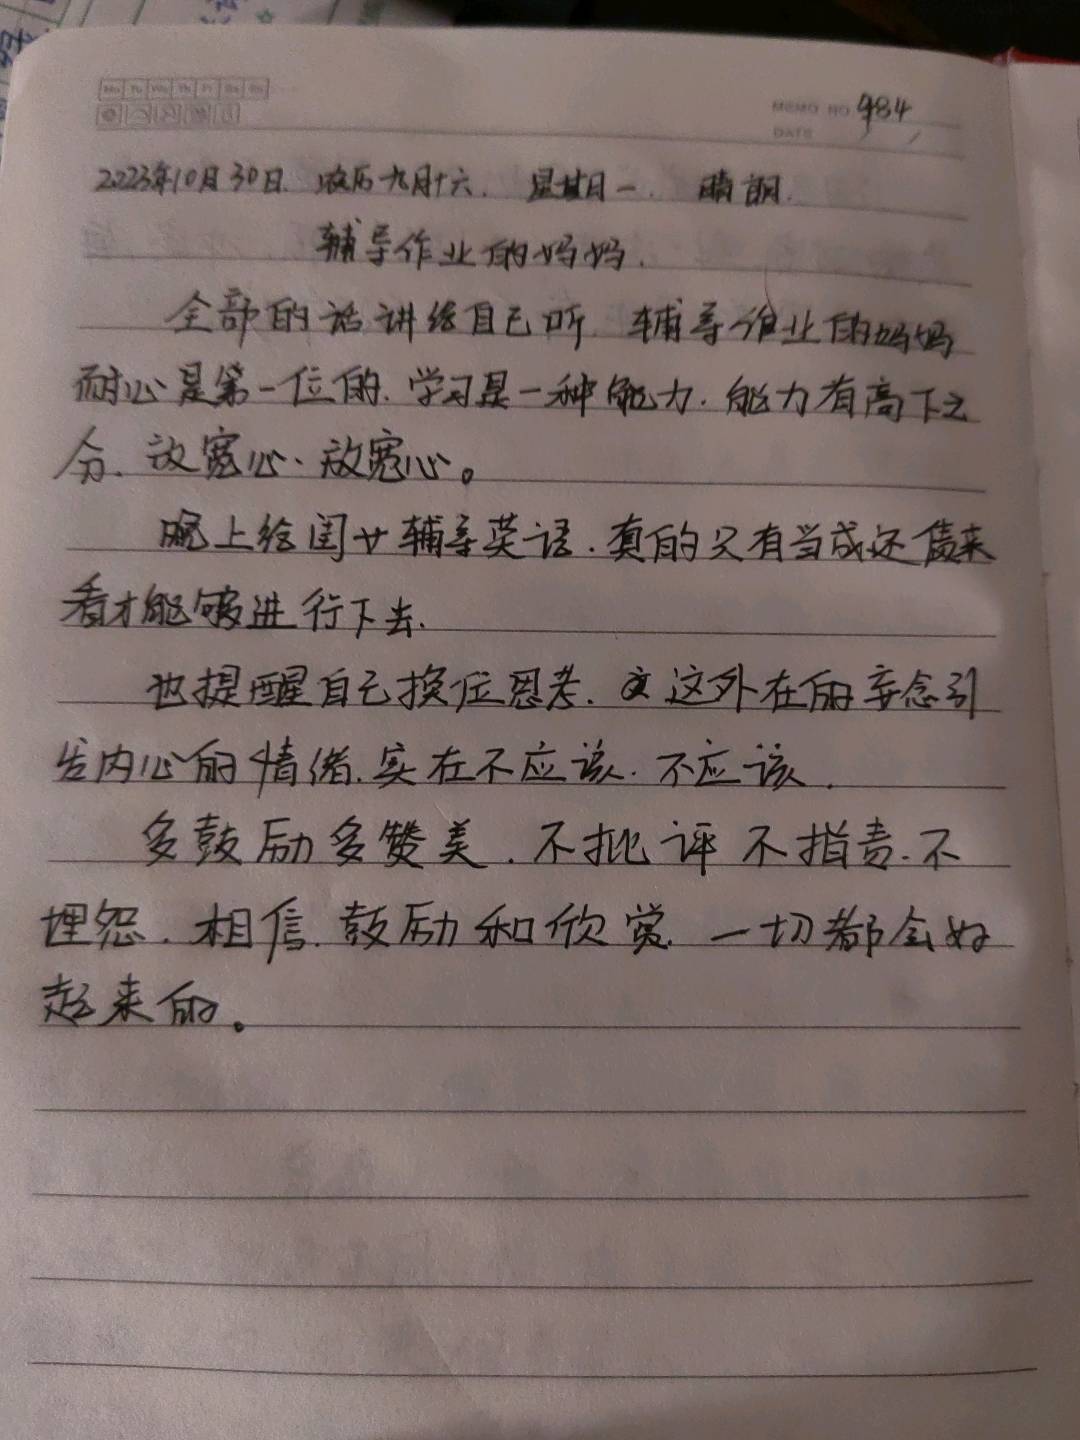 Mo Tu We Th Fr Sa Su
MEMO NO 984
DATE
2023年10月30日. 农历九月十六. 星期一. 晴朗.
辅导作业的妈妈.
全部的话讲给自己听. 辅导作业的妈妈
耐心是第一位的. 学习是一种能力. 能力有高下之
分. 放宽心. 放宽心。
晚上给闺女辅导英语. 真的只有当成还债来
看才能够进行下去.
也提醒自己换位思考. 这外在的妄念引
发内心的情绪. 实在不应该. 不应该.
多鼓励多赞美. 不批评不指责. 不
埋怨. 相信. 鼓励和欣赏. 一切都会好
起来的。